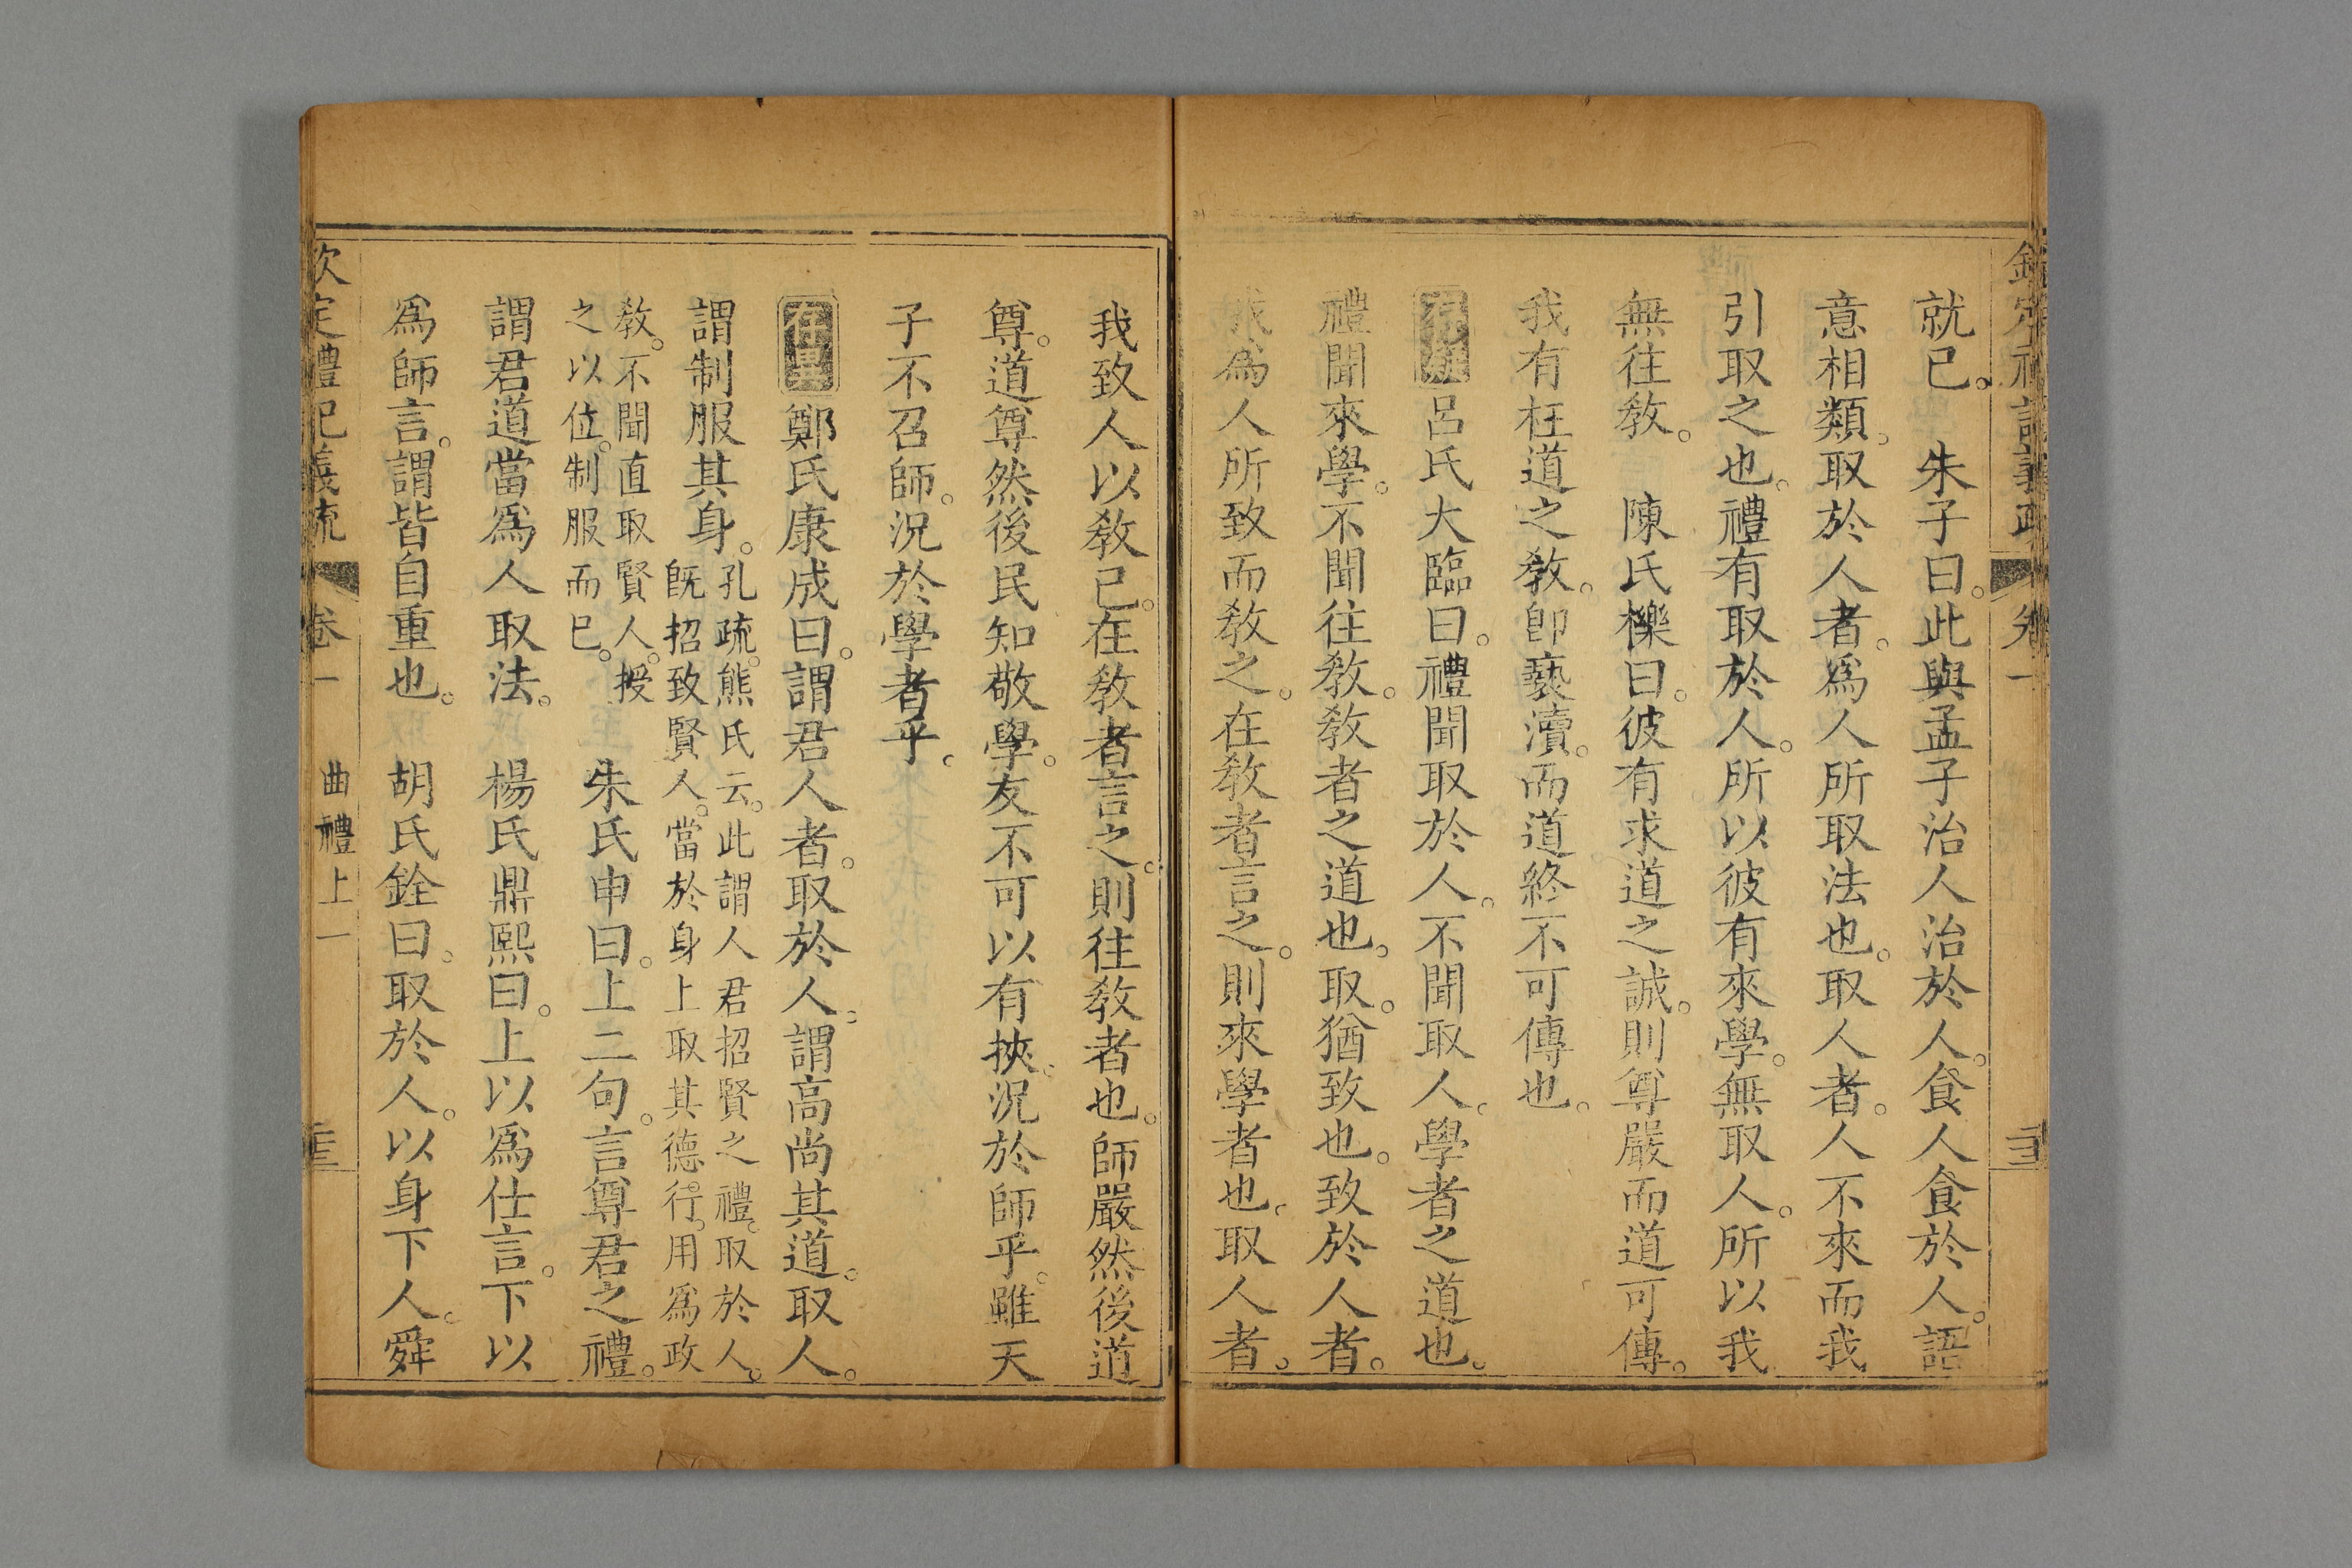 就已。　朱子曰。此與孟子治人治於人。食人食於人。語
意相類。取於人者。爲人所取法也。取人者。人不來而我
引取之也。禮有取於人。所以彼有來學。無取人。所以我
無往教。　陳氏櫟曰。彼有求道之誠。則尊嚴而道可傳。
我有枉道之教。卽褻瀆。而道終不可傳也。
存疑呂氏大臨曰。禮聞取於人。不聞取人。學者之道也。
禮聞來學。不聞往教。教者之道也。取。猶致也。致於人者。
我為人所致而教之。在教者言之。則來學者也。取人者。
我致人以教己。在教者言之。則往教者也。師嚴然後道
尊。道尊然後民知敬學。友不可以有挾。況於師乎。雖天
子不召師。況於學者乎。
存異鄭氏康成曰。謂君人者。取於人。謂高尚其道。取人。
謂制服其身。孔疏。熊氏云。此謂人君招賢之禮。取於人。
既招致賢人。當於身上取其德行。用爲政
教。不聞直取賢人。授
之以位。制服而已。　朱氏申曰。上二句。言尊君之禮。
謂君道當爲人取法。　楊氏鼎熙曰。上以爲仕言。下以
爲師言。謂皆自重也。　胡氏銓曰。取於人。以身下人。舜
欽定禮記義疏　卷一　曲禮上一